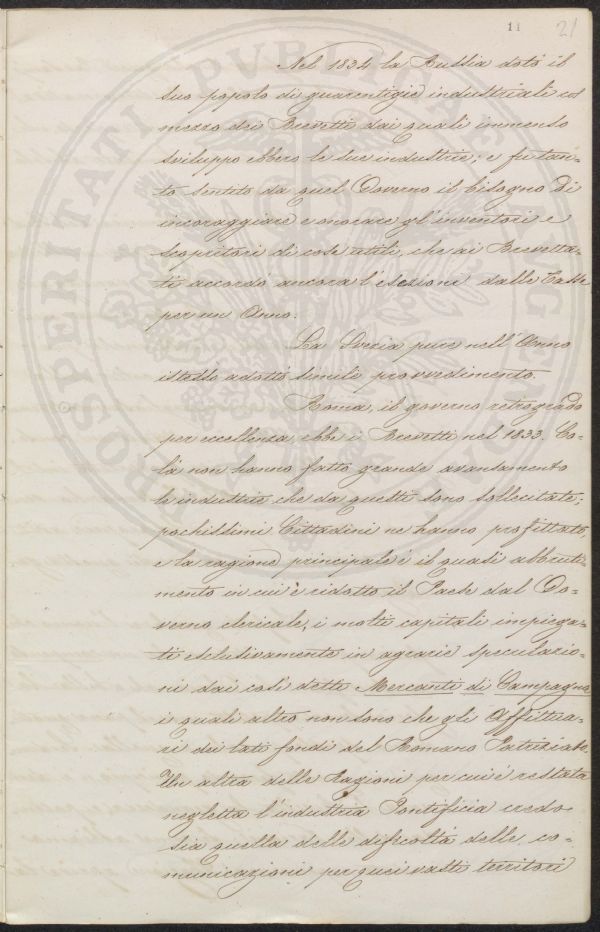 11 21
Nel 1834 la Russia dotò il
suo popolo di guarentigie industriali col
mezzo dei Brevetti dai quali immenso
sviluppo ebbero le sue industrie; e fu tan-
to sentito da quel Governo il bisogno di
incoraggiare e onorare gl'inventori e
scopritori di cose utili, che ai Brevetta-
ti accordò ancora l'esezione dalle Tasse
per un Anno.
La Svezia pure nell'Anno
istesso adottò simili provvedimento.
Roma, il governo retrogrado
per eccellenza, ebbe i Brevetti nel 1833. Co-
là non hanno fatto grande avansamento
le industrie che da questi sono sollecitate;
pochissimi Cittadini ne hanno profittato,
e la ragione principale è il quasi abbruti-
mento in cui è ridotto il Paese dal Go-
verno clericale, i molti capitali impiega-
ti esclusivamente in agrarie speculazio-
ni dai così detti Mercanti di Campagna
i quali altro non sono che gli Affittua-
ri dei lati fondi del Romano Patriziato.
Un altra delle Ragioni per cui è restata
negletta l'industria Pontificia credo
sia quella delle difficoltà delle co-
municazioni per quei vasti territori
PROSPERITATI PVBLICAE AVGENDAE